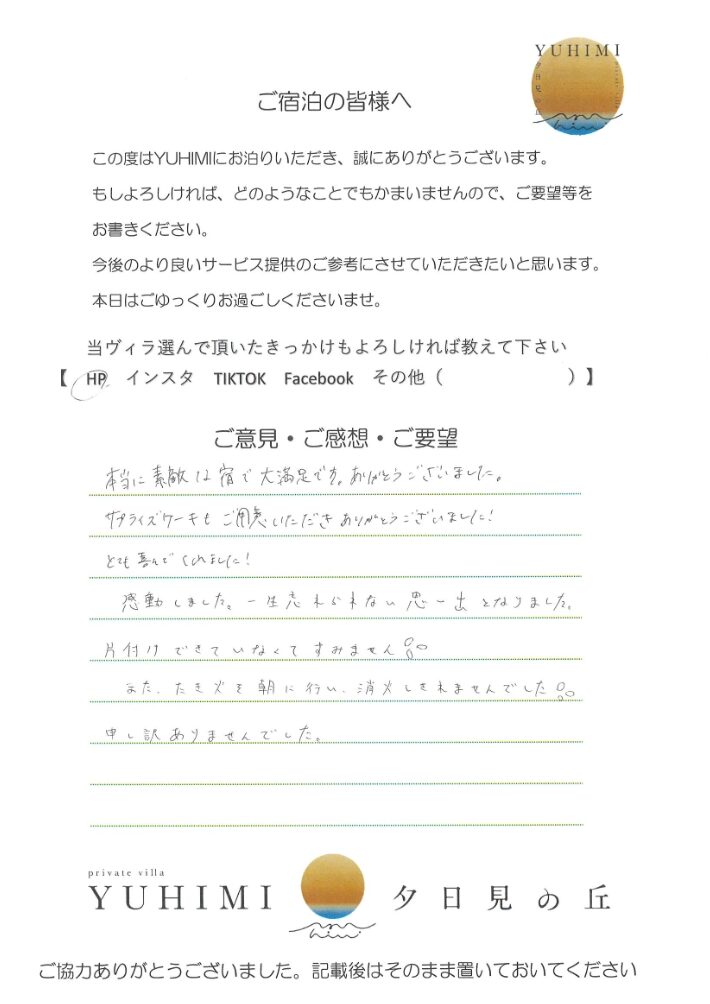 YUHIMI
夕日見の丘
private villa
ご宿泊の皆様へ
この度はYUHIMIにお泊りいただき、誠にありがとうございます。
もしよろしければ、どのようなことでもかまいませんので、ご要望等を
お書きください。
今後のより良いサービス提供のご参考にさせていただきたいと思います。
本日はごゆっくりお過ごしくださいませ。
当ヴィラ選んで頂いたきっかけもよろしければ教えて下さい
【 HP インスタ TIKTOK Facebook その他（ ）】
ご意見・ご感想・ご要望
本当に素敵な宿で大満足です。ありがとうございました。
サプライズケーキもご用意いただきありがとうございました!
とても喜んでくれました!
感動しました。一生忘れられない思い出となりました。
片付けできていなくてすみません
また、たき火を朝に行い、消火しきれませんでした
申し訳ありませんでした。
private villa
YUHIMI 夕日見の丘
ご協力ありがとうございました。記載後はそのまま置いておいてください